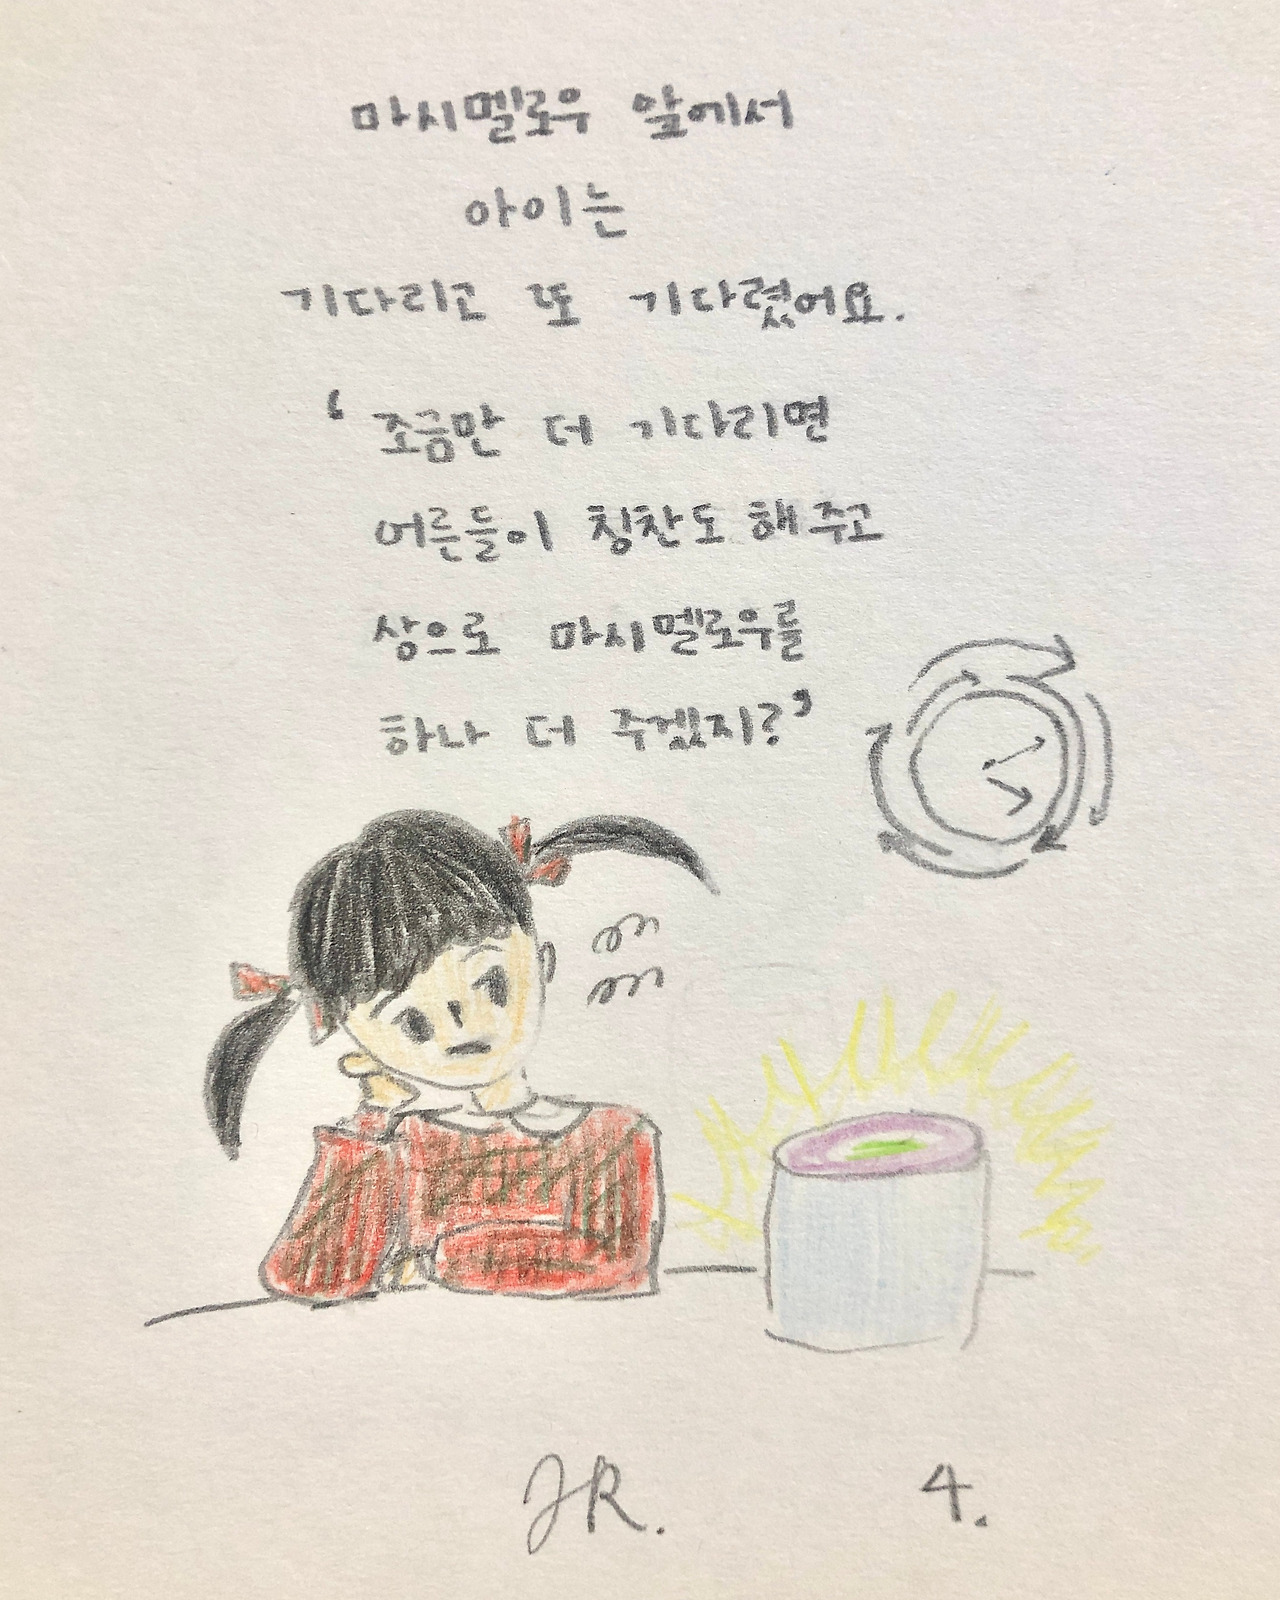 마시멜로우 앞에서
아이는
기다리고 또 기다렸어요.
‘조금만 더 기다리면
어른들이 칭찬도 해주고
상으로 마시멜로우를
하나 더 주겠지?’
JR.
4.